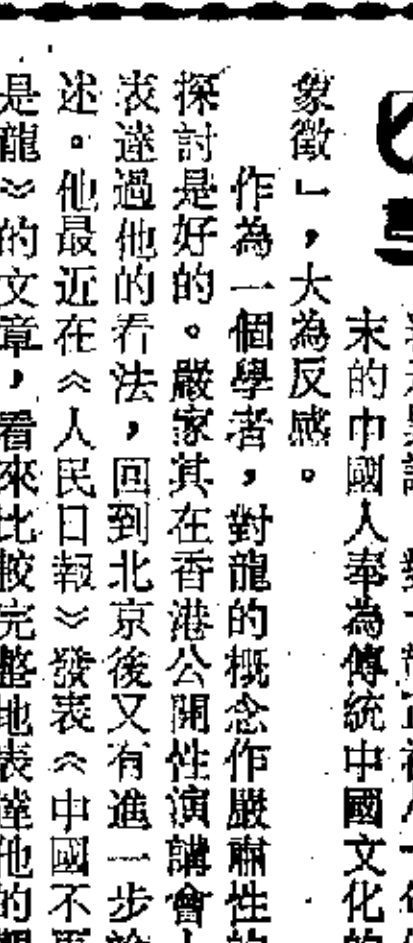 末的中國人奉為傳統中國文化的
象徵」，大為反感。
作為一個學者，對龍的概念作嚴肅性的
探討是好的。嚴家其在香港公開性演講會上
表達過他的看法，回到北京後又有進一步
述。他最近在《人民日報》發表《中國不再
是龍》的文章，看來比較完整地表達他的